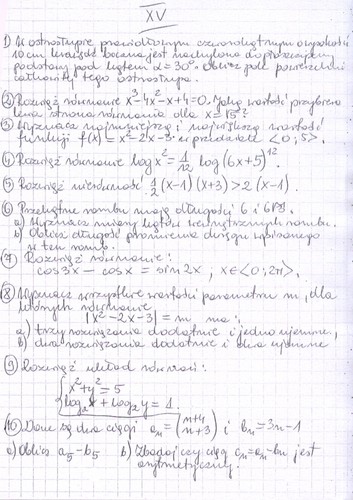 XV
1) W ostrosłupie prawidłowym czworokątnym o wysokości
10 cm krawędź boczna jest nachylona do płaszczyzny
podstawy pod kątem α=30°. Oblicz pole powierzchni
całkowitej tego ostrosłupa.
2) Rozwiąż równanie x³-4x²-x+4=0. Jaką wartość przybiera
lewa strona równania dla x=√5?
3) Wyznacz najmniejszą i największą wartość
funkcji f(x)=x²-2x-3 w przedziale <0;5>.
4) Rozwiąż równanie log x² = 1/12 log (6x+5)¹².
5) Rozwiąż nierówność 1/2 (x-1)(x+3) > 2(x-1).
6) Przekątne rombu mają długości 6 i 6√3.
a) Wyznacz miary kątów wewnętrznych rombu.
b) Oblicz długość promienia okręgu wpisanego
w ten romb.
7) Rozwiąż równanie:
cos3x - cosx = sin2x, x∈<0;2π>.
8) Wyznacz wszystkie wartości parametru m, dla
których równanie
|x²-2x-3| = m ma:
a) trzy rozwiązania dodatnie i jedno ujemne,
b) dwa rozwiązania dodatnie i dwa ujemne
9) Rozwiąż układ równań:
x²+y²=5
log₂x + log₂y = 1.
10) Dane są dwa ciągi aₙ = (n+4 n+3) i bₙ=3n-1
a) Oblicz a₅-b₅ b) Zbadaj czy ciąg cₙ=aₙ-bₙ jest
arytmetyczny.